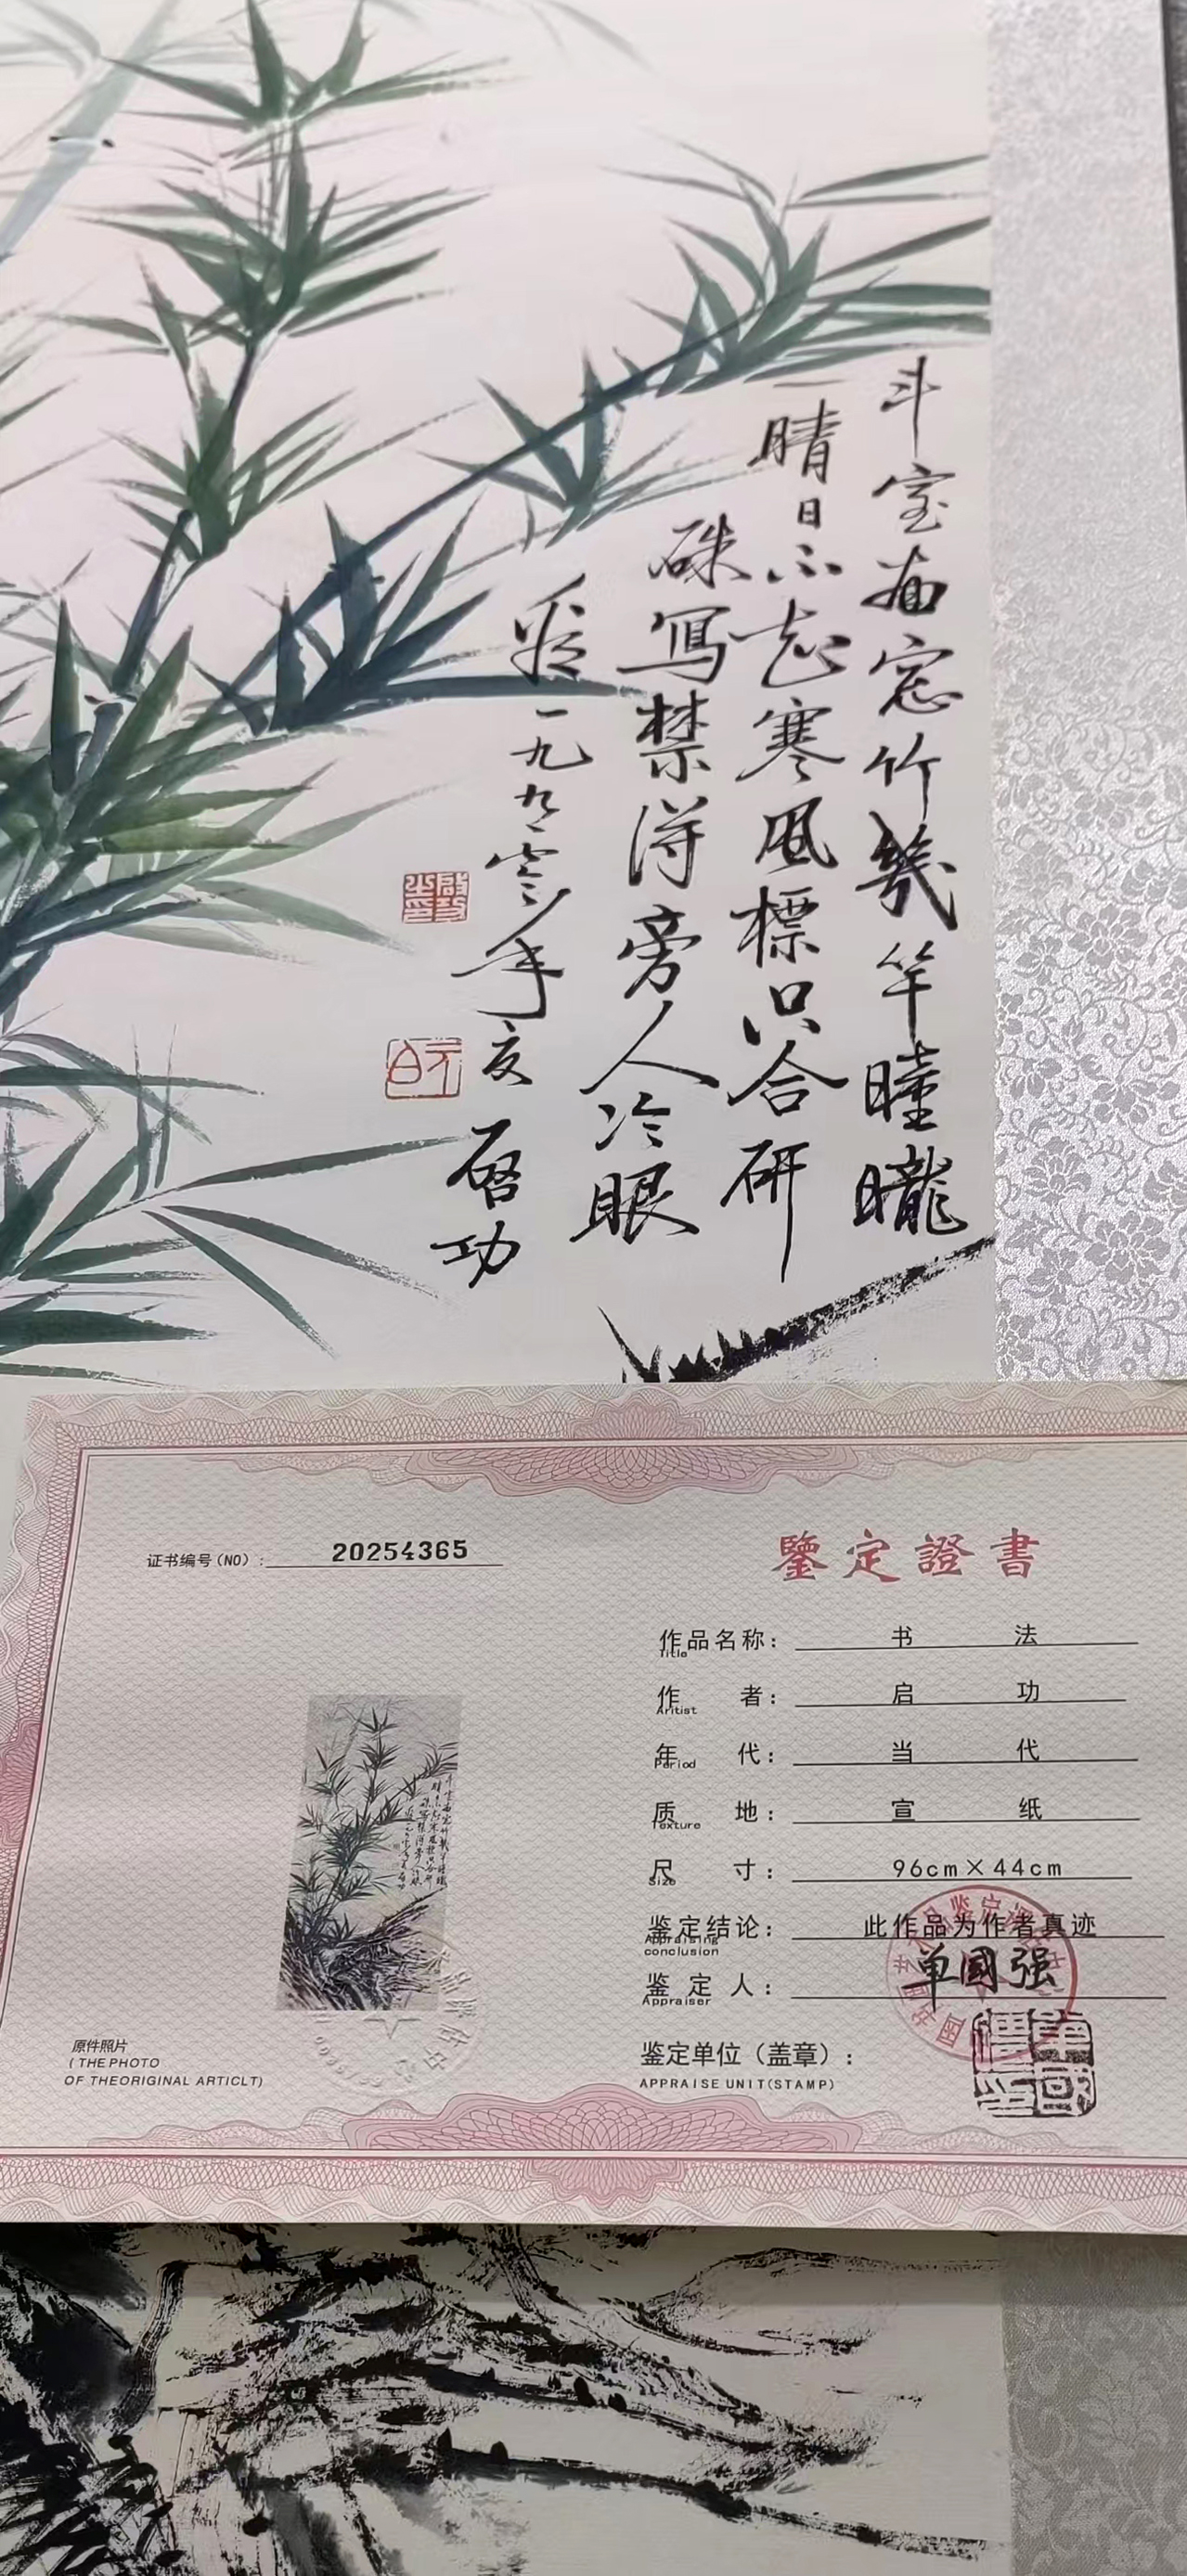 斗室南窓竹幾竿曈曨
晴日不知寒風標只合研
硃寫禁得旁人冷眼
看一九九零年夏
启功
元白
证书编号(NO): 20254365
鑒定證書
作品名称: 书 法
Title
作 者: 启 功
Aritist
年 代: 当 代
Period
质 地: 宣 纸
Texture
尺 寸: 96cm×44cm
Size
鉴定结论: 此作品为作者真迹
Appraising
conclusion
鉴 定 人: 单國强
Appraiser
鉴定单位（盖章）:
APPRAISE UNIT(STAMP)
原件照片
( THE PHOTO
OF THEORIGINAL ARTICLT)